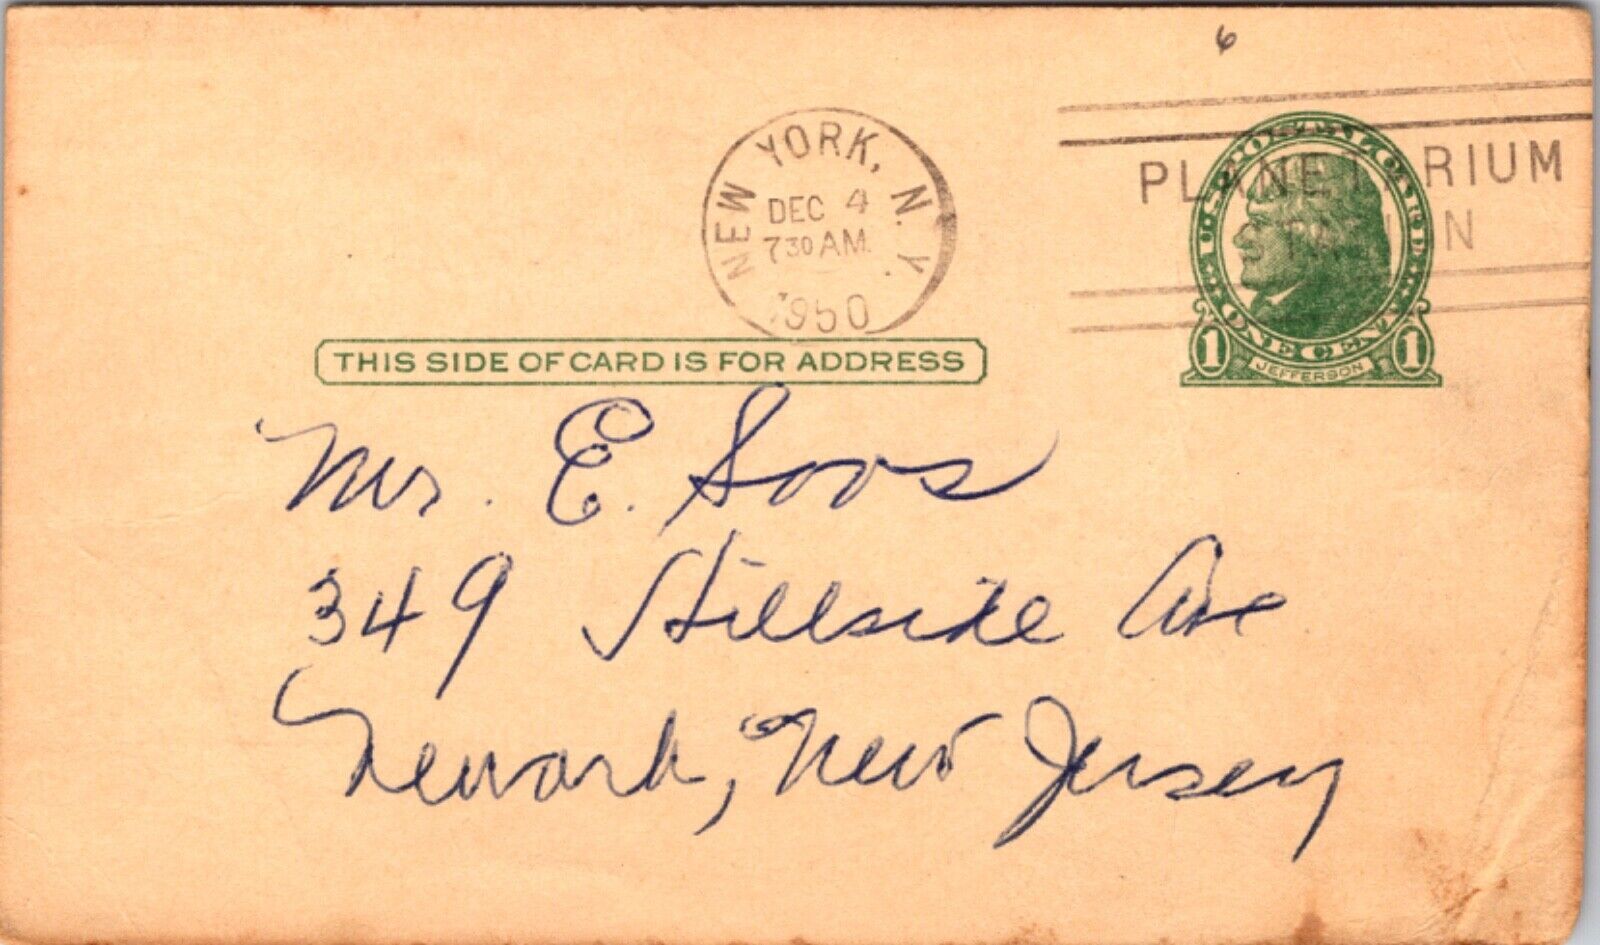 6
NEW YORK, N.Y.
DEC 4
730 AM.
1950
PLANETARIUM
STATION
U.S. POSTAL CARD
ONE CENT
1 JEFFERSON 1
THIS SIDE OF CARD IS FOR ADDRESS
Mr. E. Soos
349 Hillside Ave
Newark, New Jersey